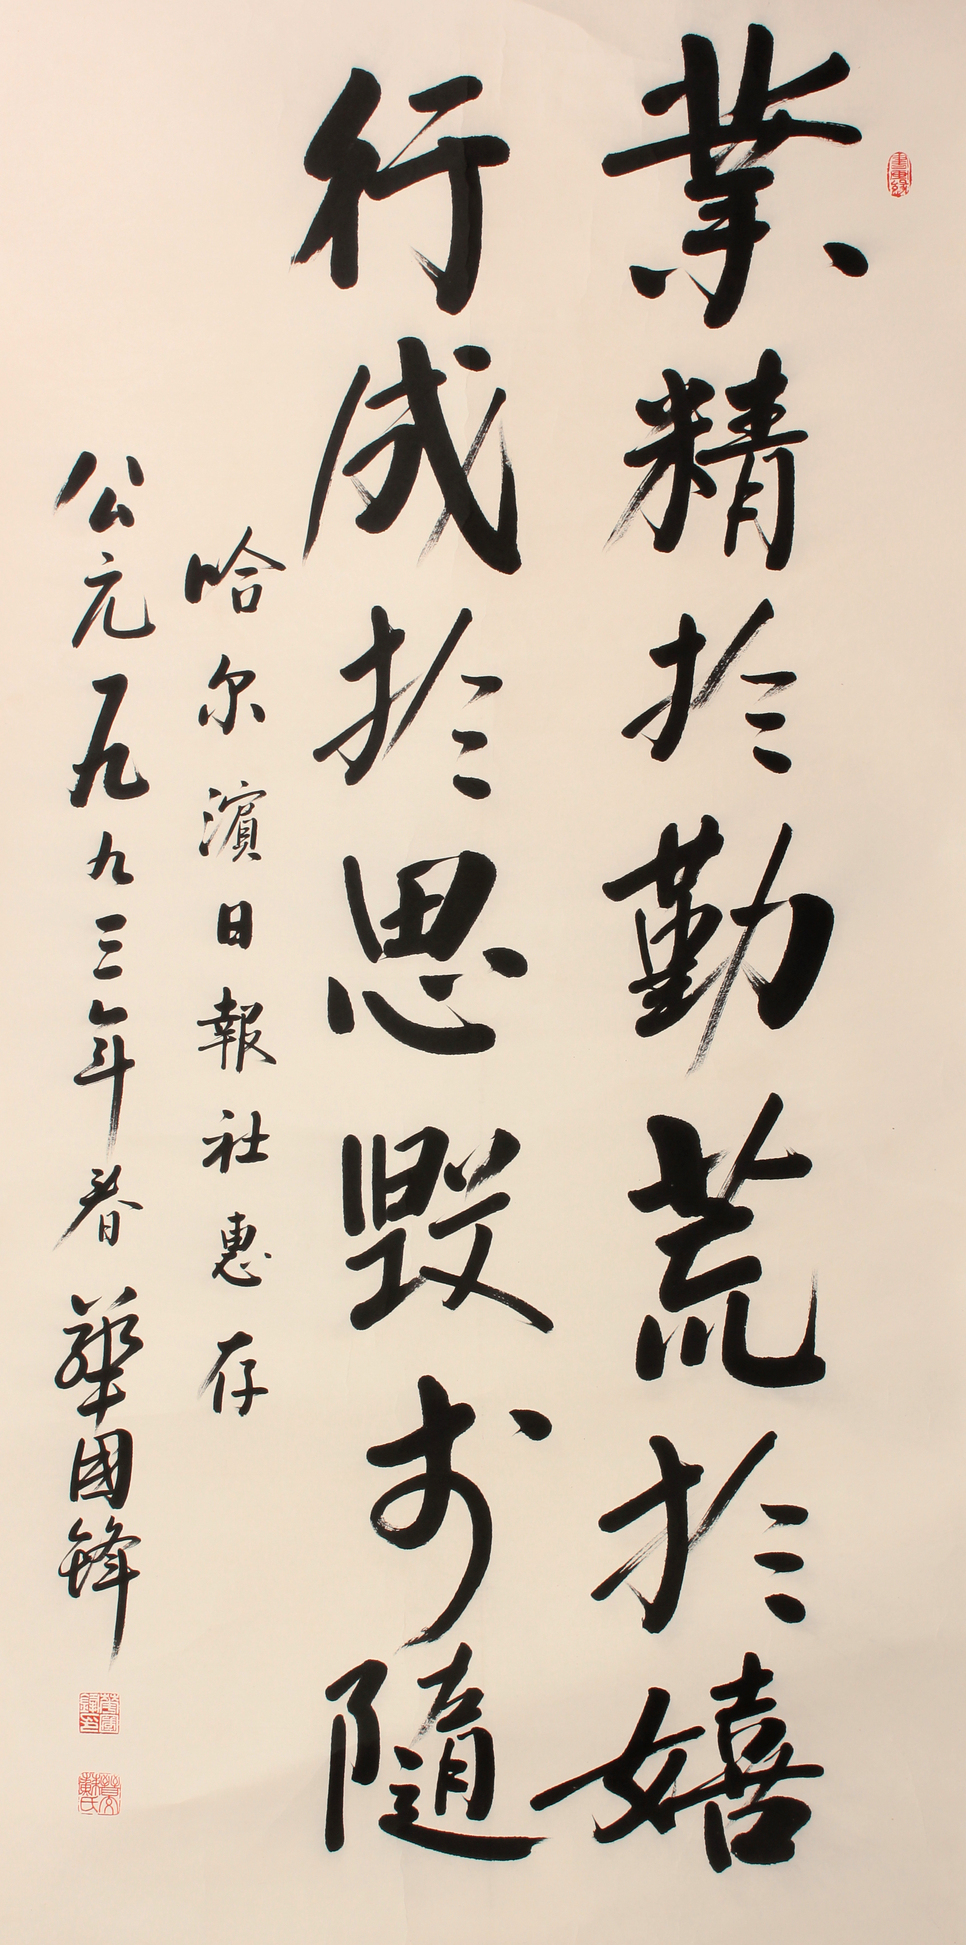 業精於勤荒於嬉
行成於思毀於隨
哈尔濱日報社惠存
公元一九九三年春 華國鋒